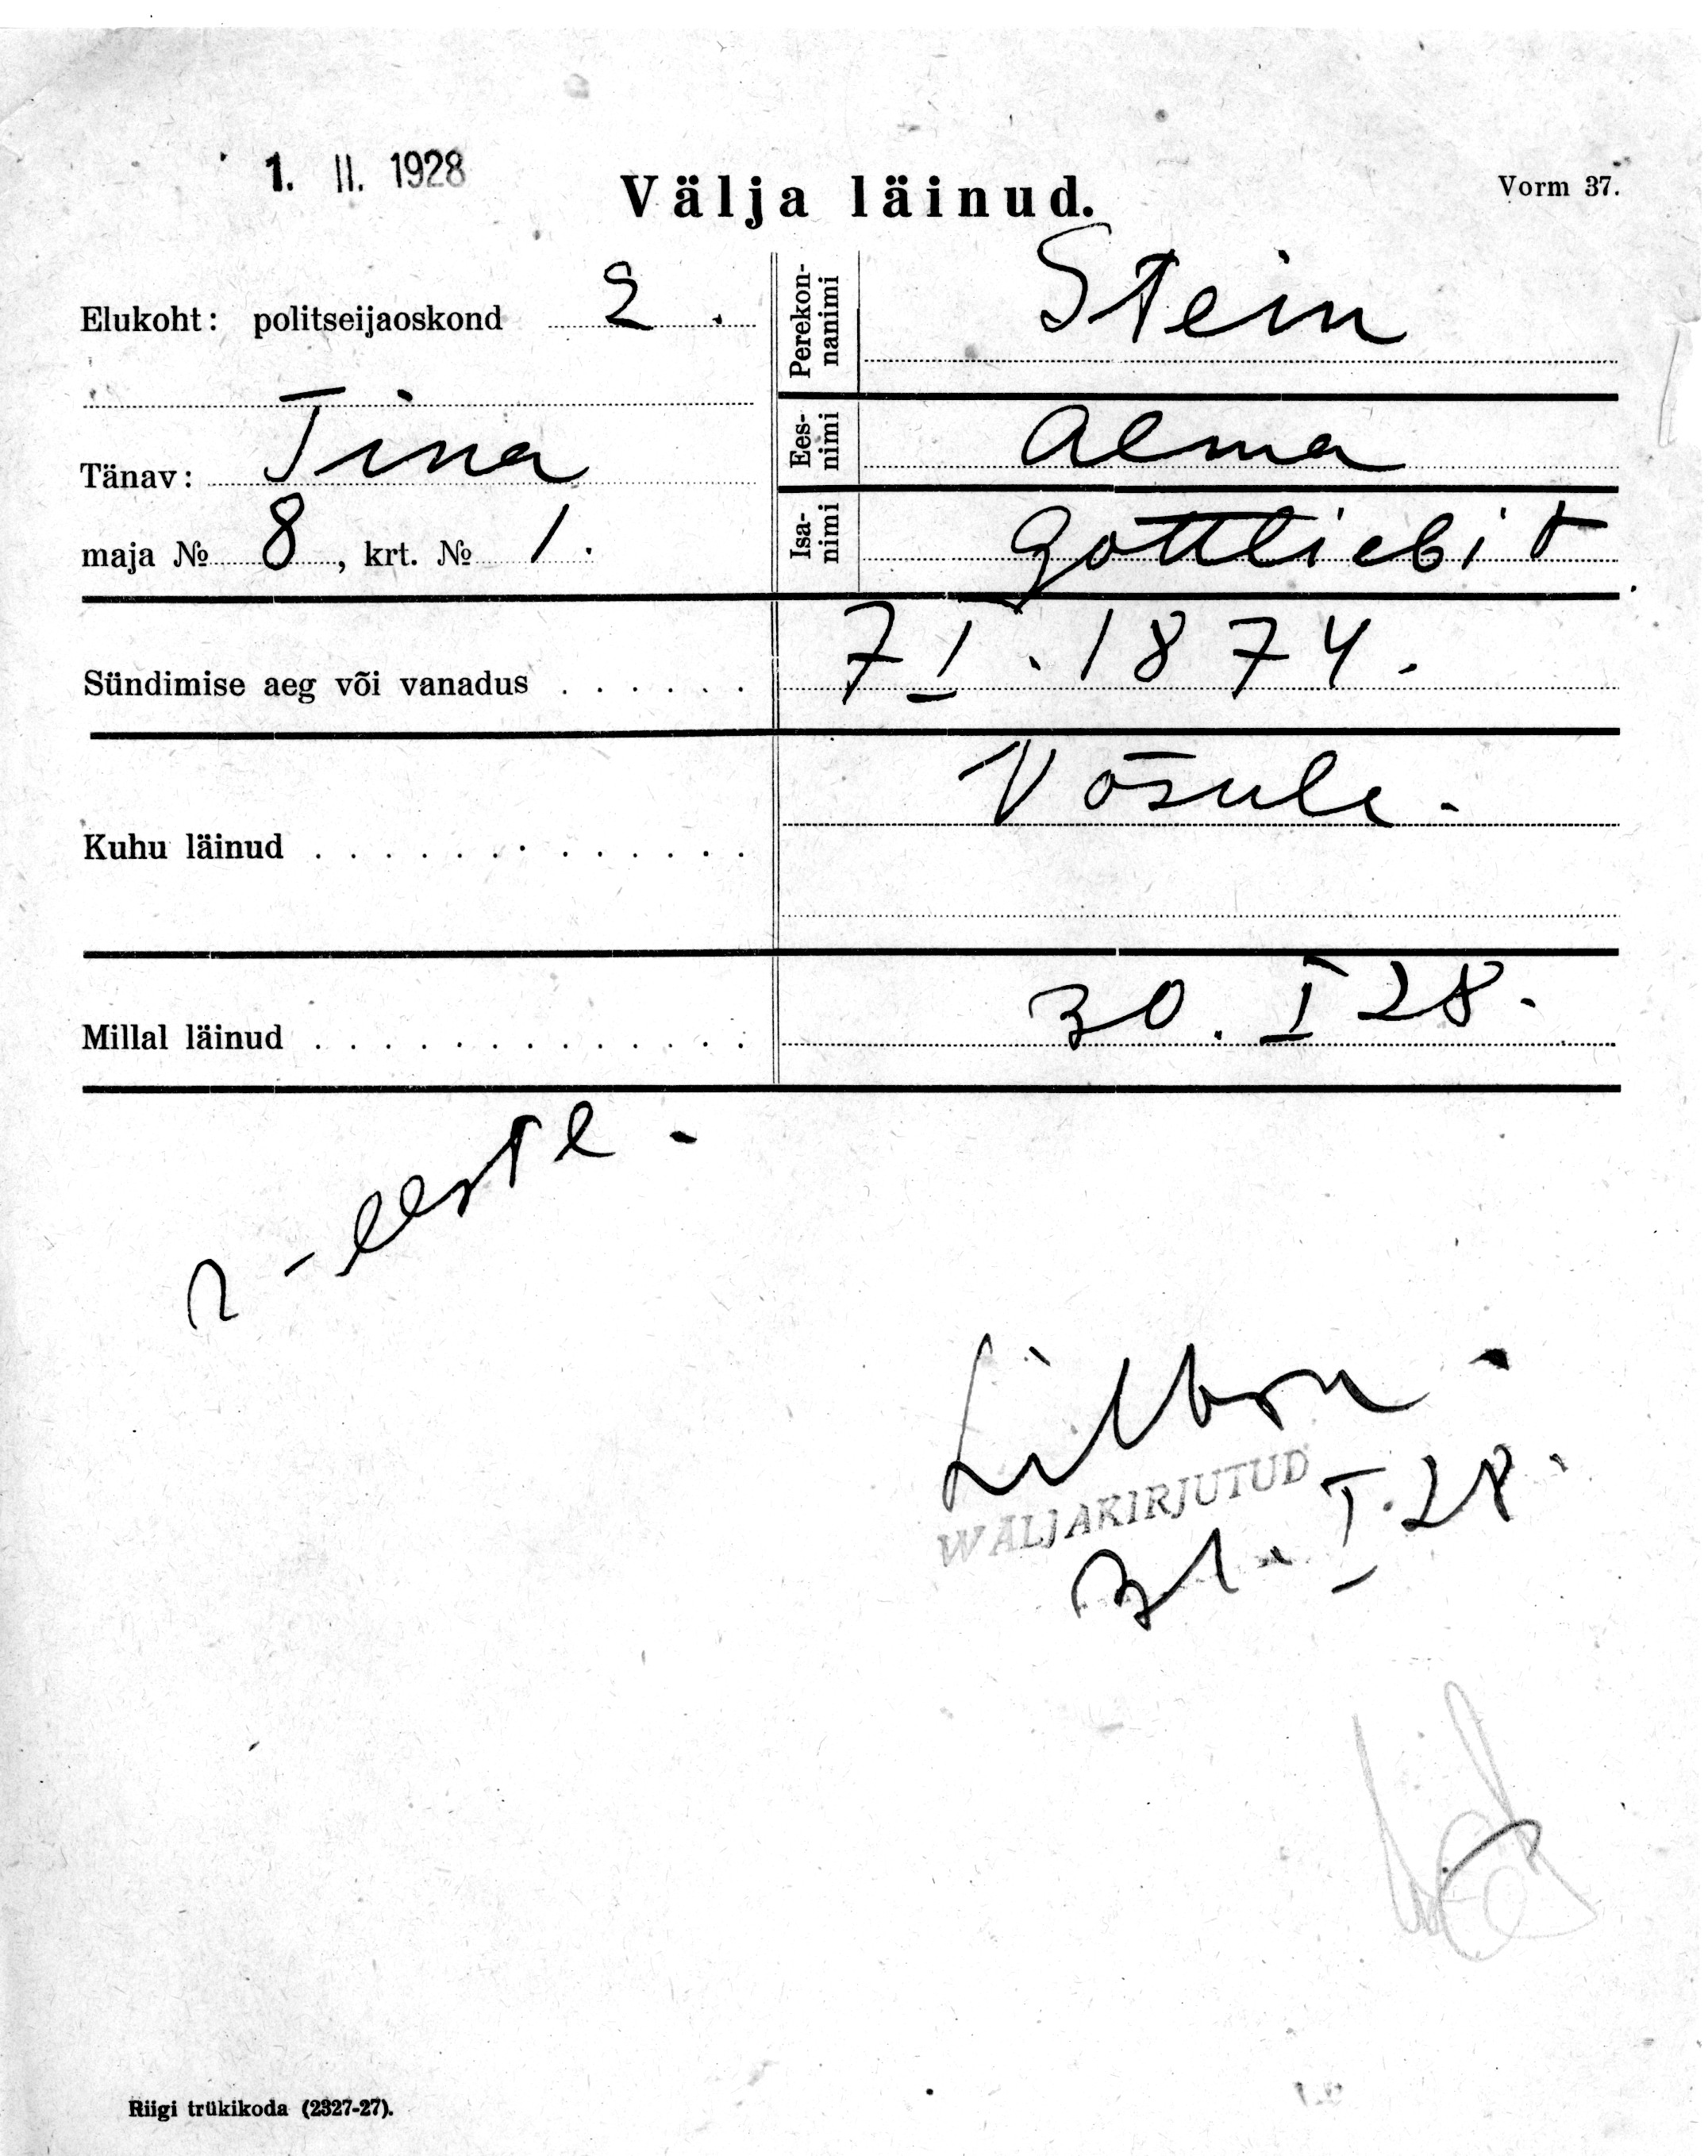 1. II. 1928
Välja läinud.
Vorm 37.
Elukoht: politseijaoskond 2.
Tänav: Tina
maja № 8, krt. № 1.
Perekon-
nanimi
Stein
Ees-
nimi
Alma
Isa-
nimi
Gottliebi t
Sündimise aeg või vanadus . . . . . .
7 I. 1874.
Kuhu läinud . . . . . . . . . . . . .
Võsule.
Millal läinud . . . . . . . . . . . . .
30. I 28.
WÄLJAKIRJUTUD
31. I. 28.
Riigi trükikoda (2327-27).